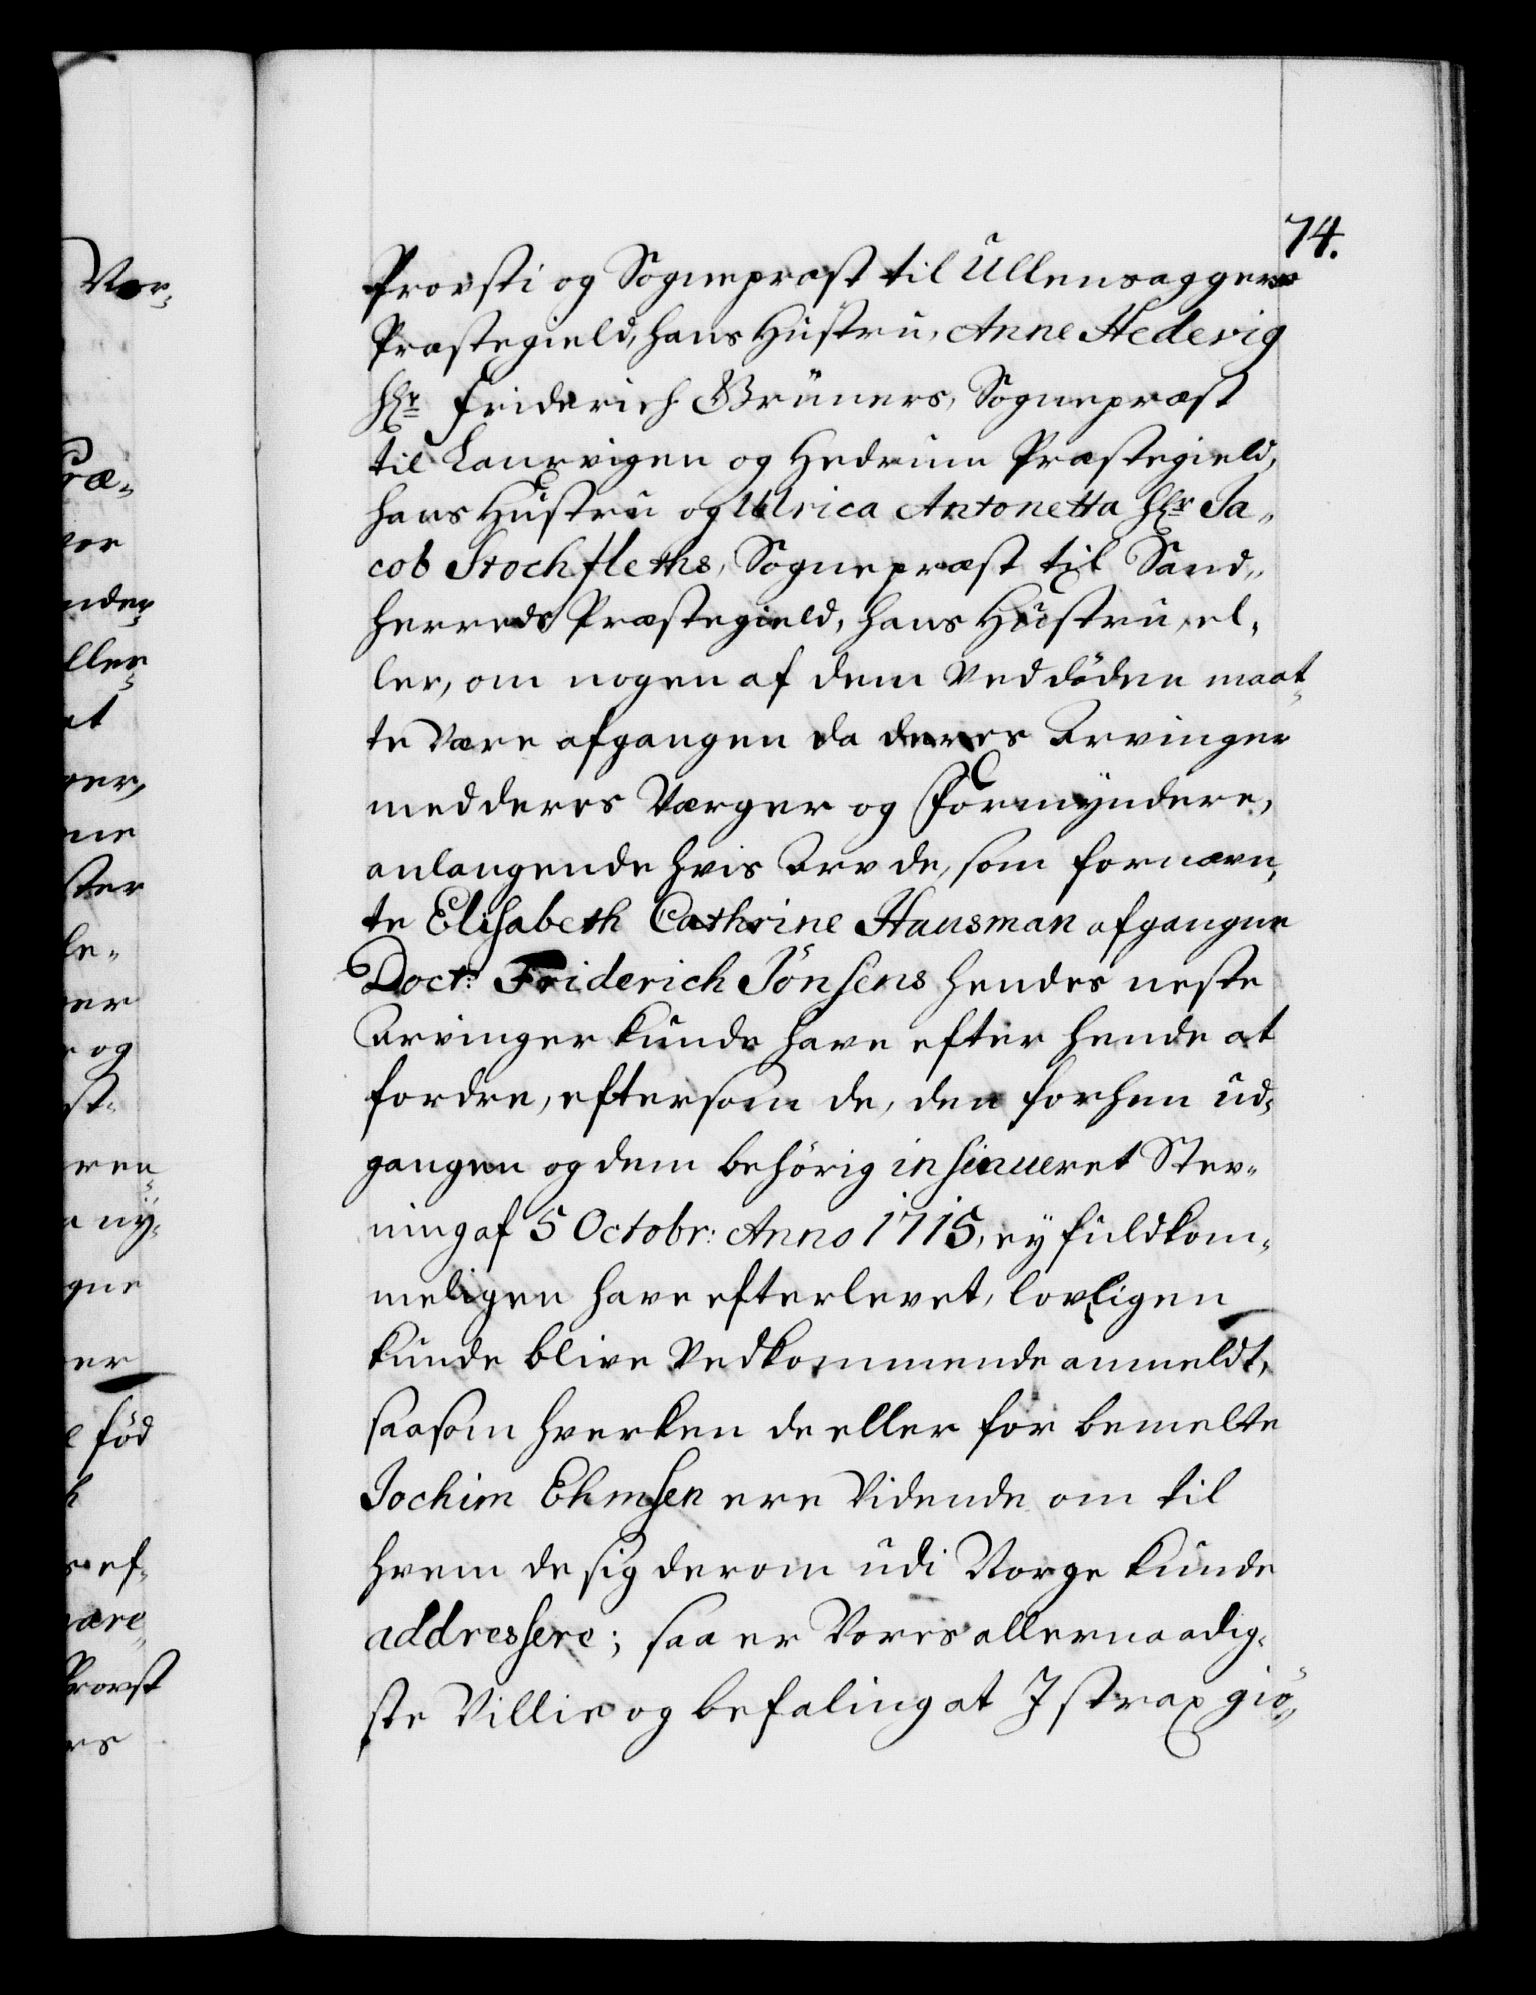 74.
Provsti og Sognepræst til Ullensaggers
Præstegield, hans Hustru, Anne Hedevig
Hr Friderich Brüners, Sognepræst
til Laurvigen og Hedrum Præstegield,
hans Hustru og Ulrica Antonetta Hr Ja„
cob Stochfleths, Sognepræst til Sand„
herreds Præstegield, hans Hustru, el„
ler, om nogen af dem ved döden maat„
te være afgangen da deres Arvinger
med deres Værger og Formÿndere,
anlangende hvis Arv de, som fornævn„
te Elisabeth Cathrine Hausman afgangne
Doct: Friderich Jönsens hendes neste
Arvinger kunde have efter hende at
fordre, eftersom de, den forhen ud„
gangen og dem behörig insinueret Stev„
ning af 5 Octobr: Anno 1715, eÿ fuldkom„
meligen have efterlevet, lovligen
kunde blive Vedkommende anmeldt,
saasom hverken de eller for bemelte
Jochim Ehmsen ere Vidende om til
hvem de sig derom udi Norge kunde
addressere; saa er Vores allernaadig„
ste Villie og befaling at I strax giö„
Nor„
ræ„
nder„
ller„
at
ger,
ne
ster
le„
er
og
st„
ren„
nÿ„
gne
er
föd
ef„
være„
Provst
rs